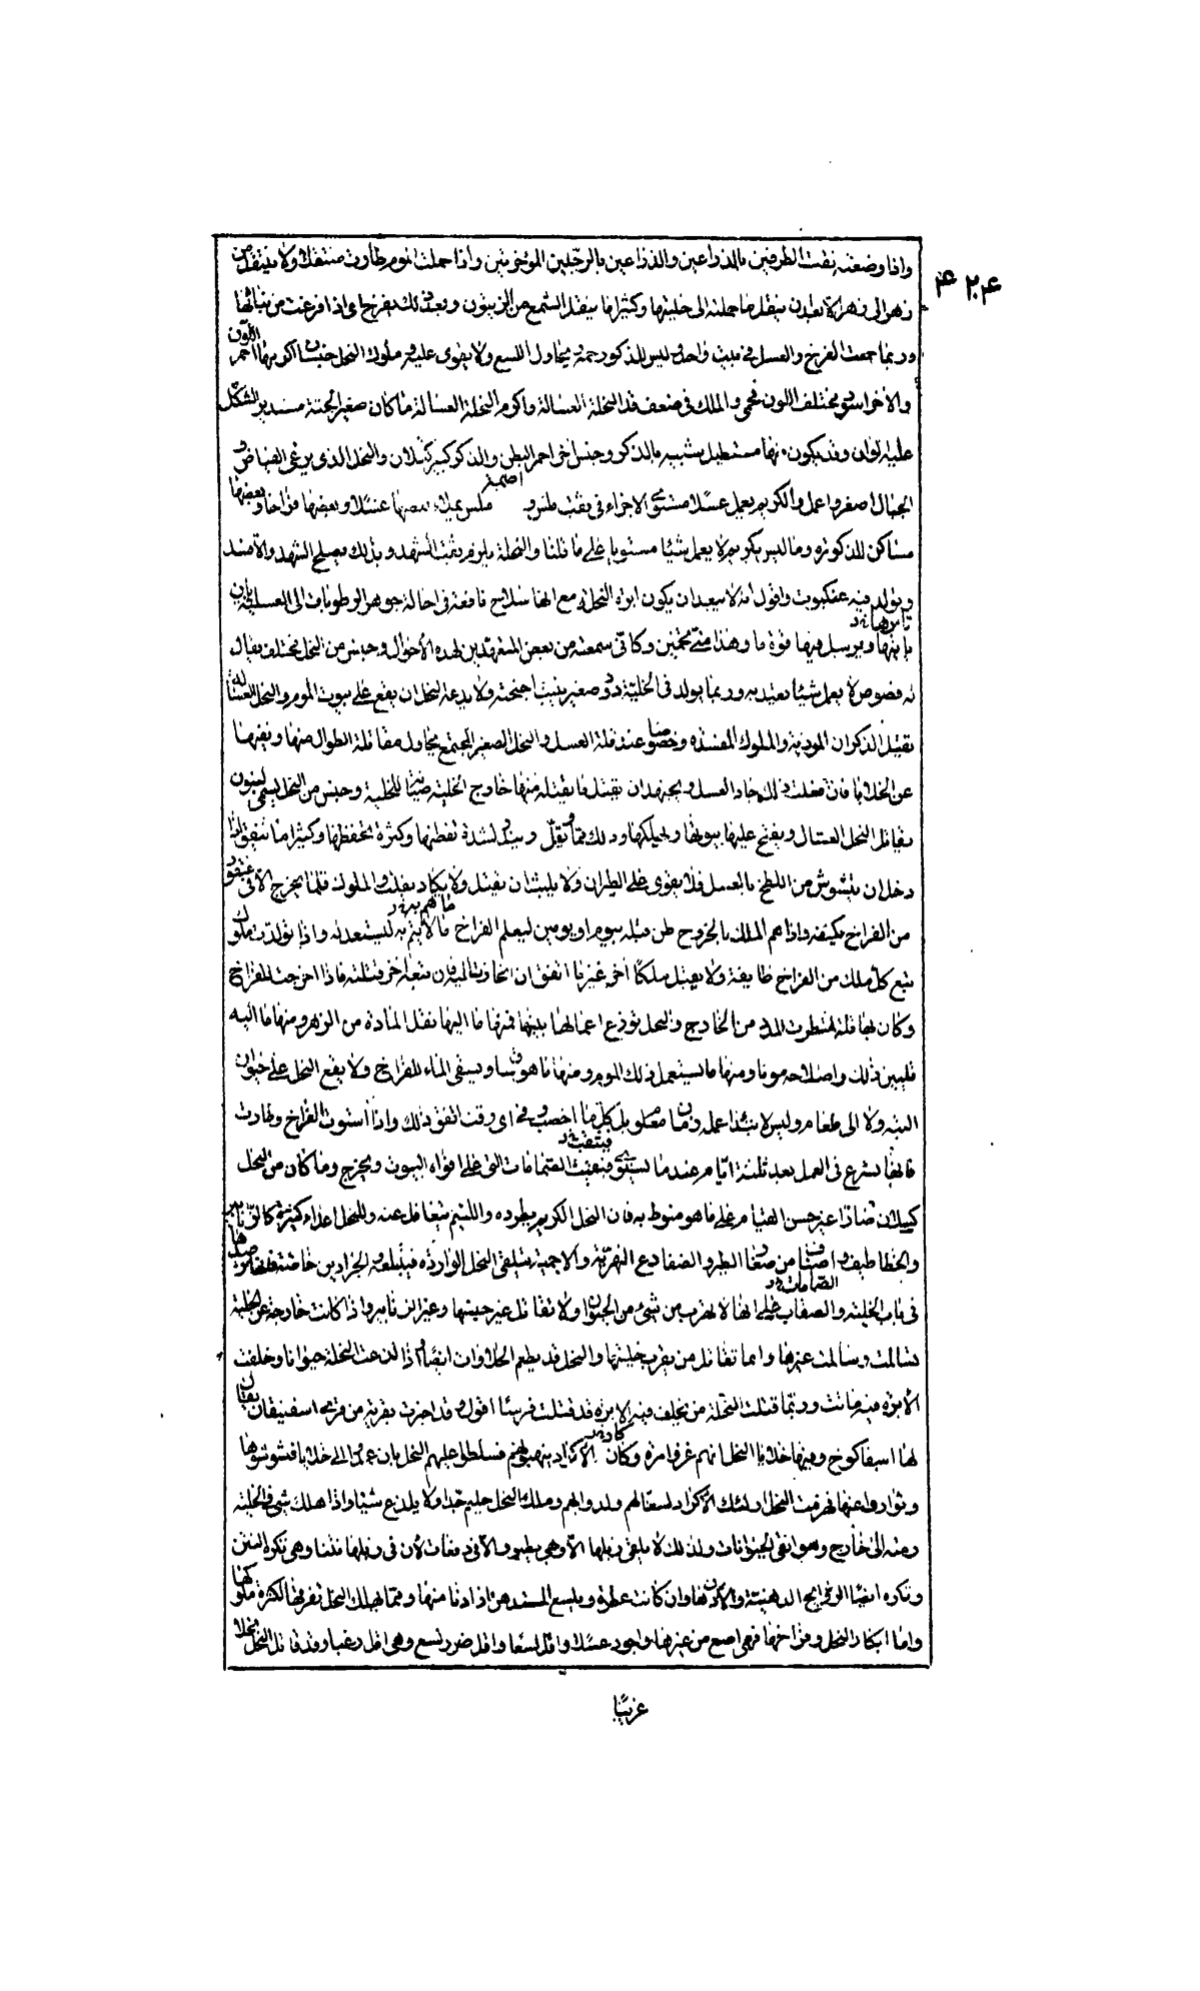 واذا وضعته نقت الطرفين بالذراعين والذراعين بالرجلين الموخرتين واذا حملت الموم طارت منتقلة ولا ينتقل من
زهر الى زهر الا بعد ان ينقل ما حملته الى خليتها وكثيرا ما ينقل الشمع من الزيتون وبعد ذلك يفرخ اى اذا فرغت من بنائها
وربما جمعت الفرخ والعسل فى بيت واحد وليس للذكور حمة ويحاول اللسع ولا يقوى عليه وملوك النحل جنسان اكرمها احمر اللون
والاخر اسود مختلف اللون فحمى والملك فى ضعف قد النحلة العسالة واكرم النحلة العسالة ما كان صغير الجثة مستدير الشكل
عليه الوان وقد يكون منها مستطيل شبيه بالذكر وجنس اخر احمر البطن والذكر كبير كسلان والنحل الذى يرعى الغياض و
الجبال اصغر واعمل والكريم يعمل عسلا مستوى الاجزاء فى ثقب ملس و املس بعضها عسلا وبعضها فراخا وبعضها
مساكن للذكورة وما ليس بكريم لا يعمل شيئا مستويا على ما قلنا والنحلة يلزم ثقب الشهد وبذلك يصلح الشهد والا فسد
وتولد فيه عنكبوت واقول انه لا يبعد ان يكون ابرة النحل مع انها سلاح نافعة فى احالة جوهر الرطوبات الى العسلية بان
بابرها ويرسل فيها قوة ما وهذا منى تخمين وكانى سمعته من بعض المتعهدين لهذه الاحوال وجنس من النحل مختلف يقال
له فصوص لا يعمل شيئا يعتد به وربما يولد فى الخلية دود صغير ينبت اجنحة ولا يدعه النحل ان يقع على بيوت الموم والنحل العسالة
يقتل الذكران الموذية والملوك المفسدة وخصوصا عند قلة العسل والنحل الصغير المجتمع يحاول مقاتلة الطوال منها ونفيها
عن الخلايا فان فعلت ذلك جاد العسل ويجتهد ان يقتل ما يقتله منها خارج الخلية صيانة للخلية وجنس من النحل يسمى لينون
يقاتل النحل العسال ويفتح عليها بيوتها ويهلكها وذلك مما يقل ويندر لشدة تيقظها وكثرة تحفظها وكثيرا ما يتفق اذا
دخل ان يتشوش من التلطخ بالعسل فلا يقوى على الطيران ولا يلبث ان يقتل ولا يكاد يفلت والملوك قلما يخرج الا فى عنقود
من الفراخ يكنفه واذا هم الملك بالخروج طن قبله بيوم او يومين ليعلم الفراخ ما هم به ليستعد له واذا تولدت ملوك
تبع كل ملك من الفراخ طايفة ولا يقبل ملكا اخر غيره
وكان بها قلة من الخارج والنحل توزع اعمالها بينها فمنها ما اليها نقل المادة من الزهر ومنها ما اليه
تليين ذلك واصلاحه موما ومنها ما يستعمل ذلك الموم ومنها ما هو بناء ويسقى الماء للفراخ ولا يقع النحل على حيوان
البتة ولا الى طعام وليس لابتداء عمله زمان معلوم بل كلما اخصب وفى اى وقت اتفق ذلك واذا استوت الفراخ وطارت
فانها يشرع فى العمل بعد ثلثة ايام عندما يستوى فيثقب الصمامات التى على افواه البيوت ويخرج وما كان من النحل
كسلان ضارا غير حسن القيام على ما هو منوط به فان النحل الكريم يطرده واللئيم يتغافل عنه وللنحل اعداء كثيرة كالزنابير
والخطاطيف واصناف من صغار الطير والضفادع النهرية والاجمية يتلقى النحل الواردة فيبتلعه والجرادين خاصة
فى باب الخلية والضفاب على انها لا يهرب من شئ من الحيوان ولا تقاتل غير جنسها وغير الزنابير واذا كانت خارجة عن الخلية
تسالمت وسالمت غيرها وانما تقاتل من يقرب خليتها والنحل قد يطعم الحلاوات ايضا واذا لدغت النحلة حيوانا وخلفت
الابرة فيه ماتت وربما قتلت النحلة من يخلف فيه الابرة قد قتلت فرسا اقول وقد اخبرت بقرية من قرى اسفنيقان يقال
لها اسفاكوخ وبينها خلايا النحل انهم عرفوا مرة وكان الاكراد ينهبونهم فسلطوا عليهم النحل بان عمدوا الى خلايا فشوشوها
وتواروا عنها فهزمت النحل اولئك الاكراد لسعا لهم ولدوابهم وملك النحل حليم جدا ولا يلدغ شيئا واذا هلك شئ فى الخلية
رمته الى خارج وهو انقى الحيوانات ولذلك لا يلقى زبلها الا وهى يطير والا فى دفعات لان فى زبلها نتنا وهى تكره النتن
وتكره ايضا الروايح الدهنية والادهان وان كانت عطرة ويلسع المتدهن اذا دنا منها ومما يهلك النحل تفرقها لكثرة ملوكها
واما ابكار النحل وفراخها فهى اصنع من غيرها واجود عسلا واقل لسعا واقل ضرر لسع وهى اقل رغبا وقد قاتل النحل نحلا
غريبا
۴۲۰۴